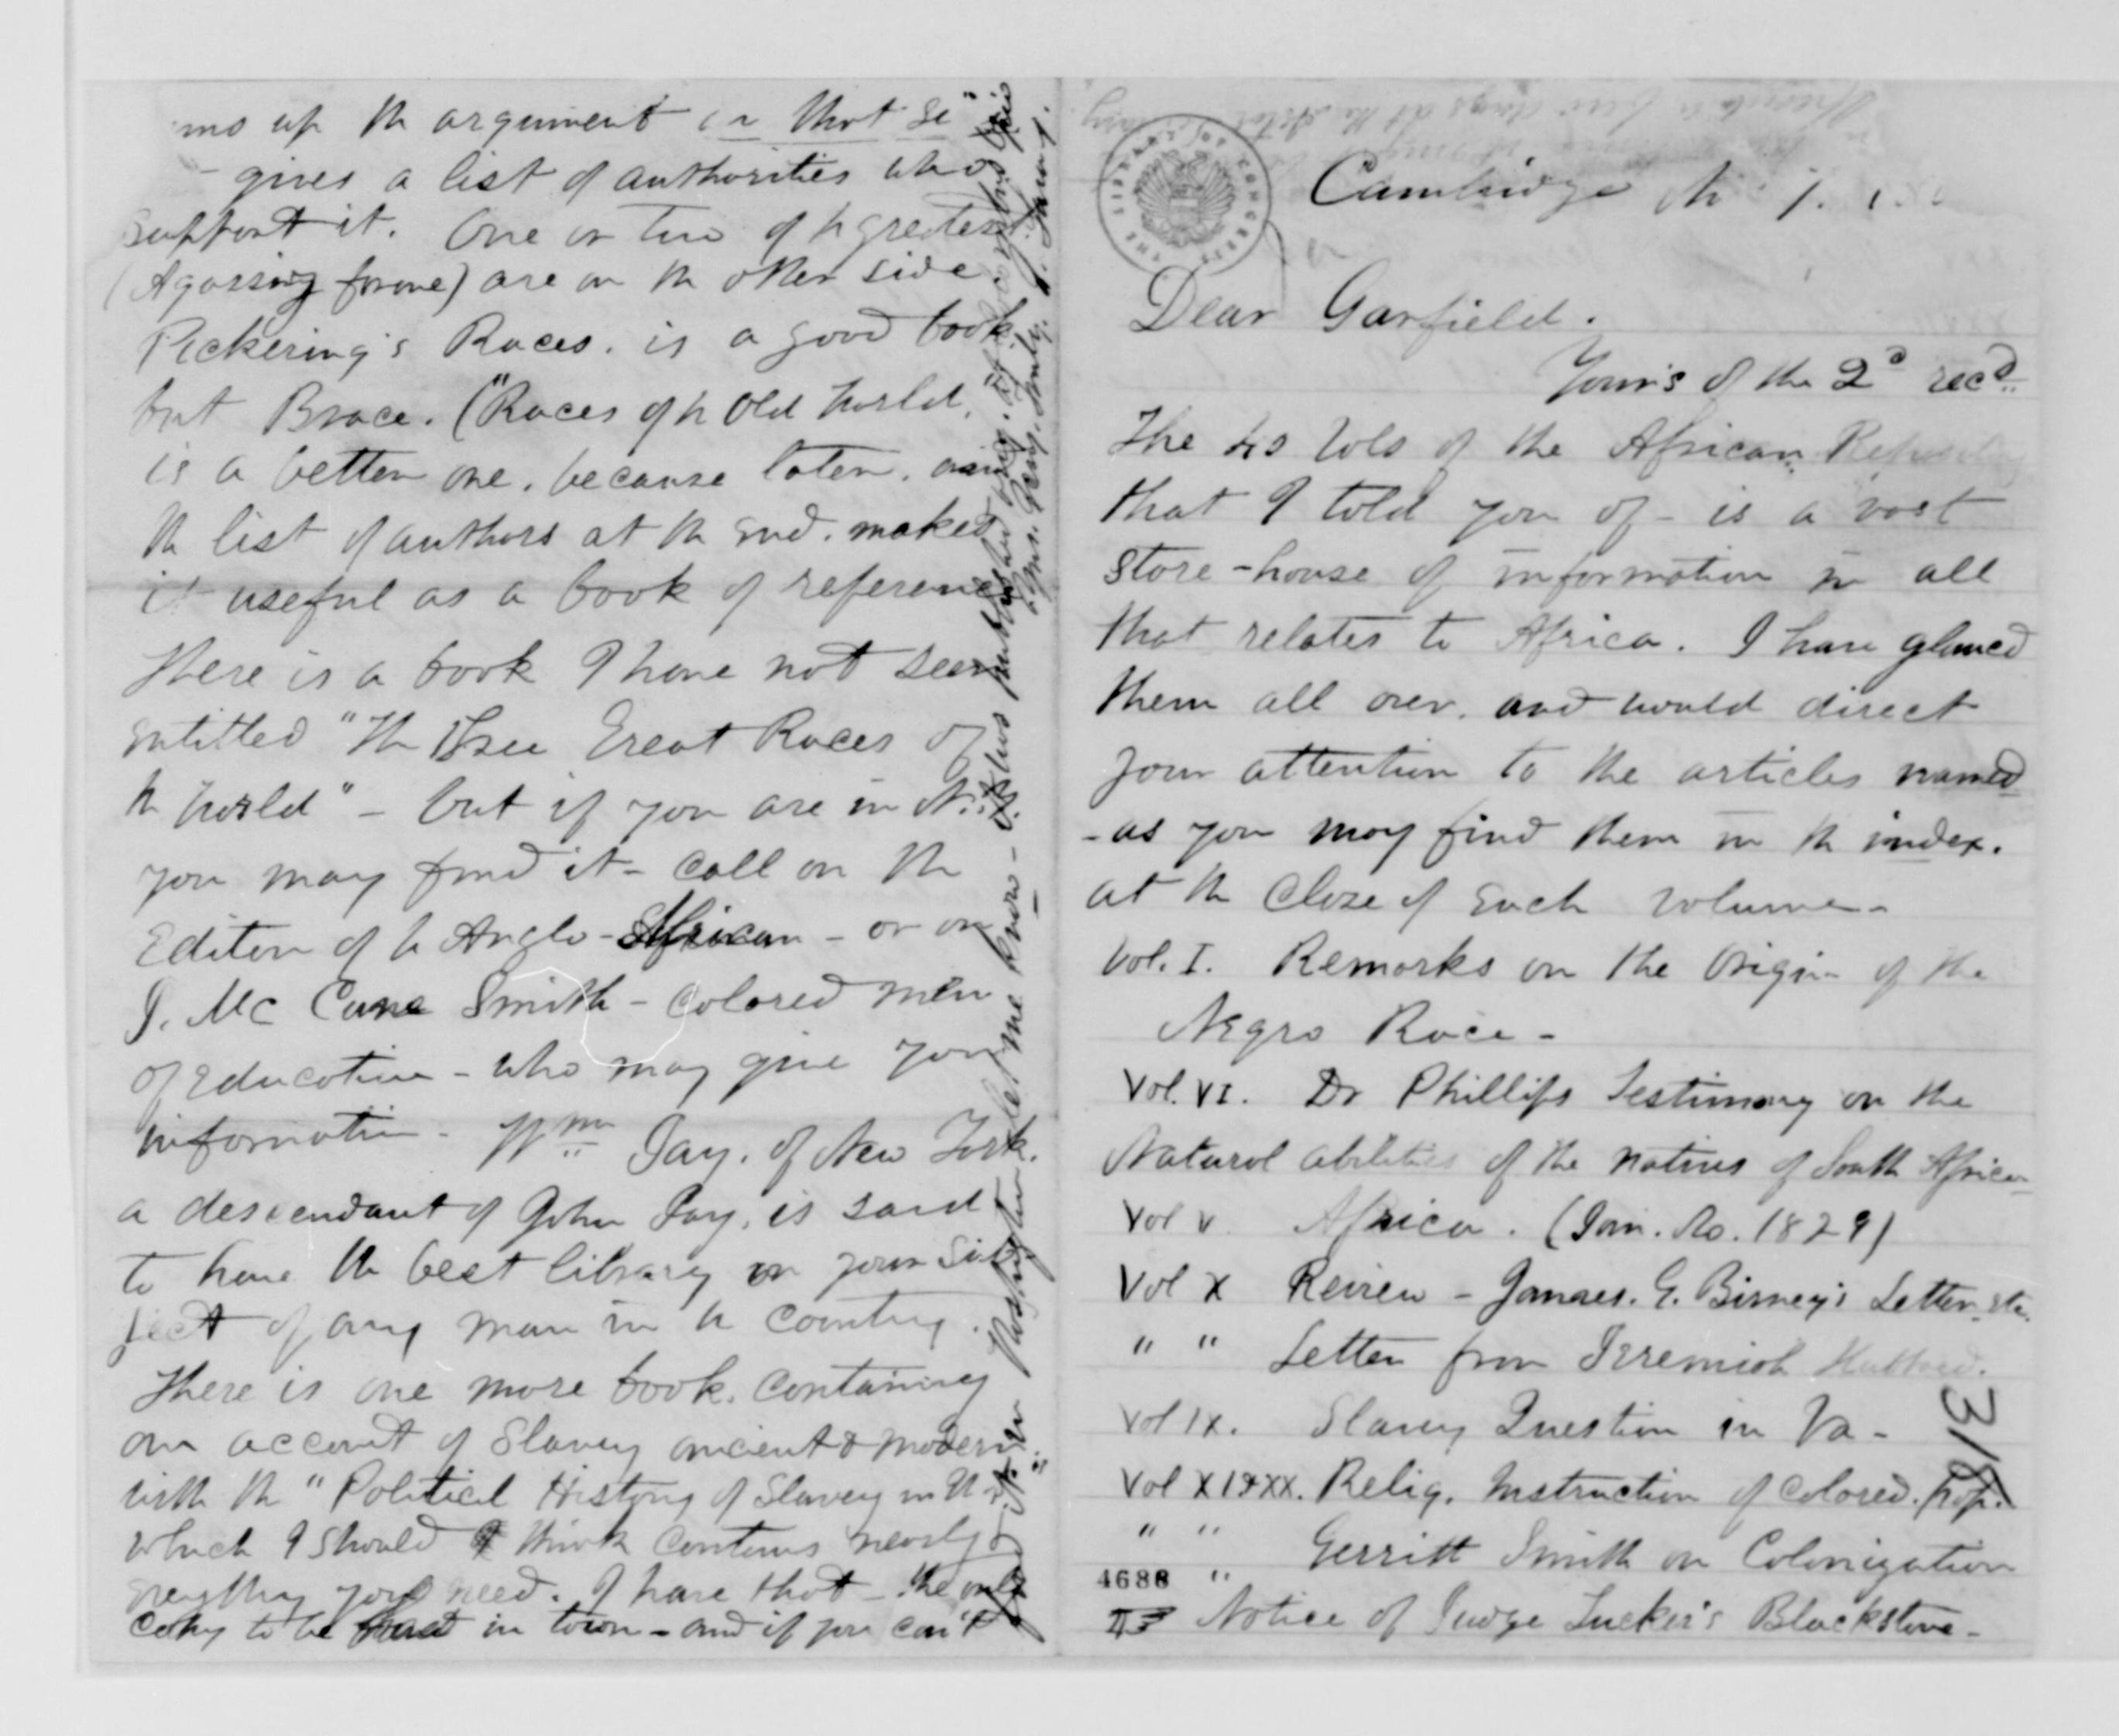 Cambridge
Dear Garfield.
Your's of the 2d recd
The 40 Vols of the African Repository
that I told you of - is a vast
store-house of information in all
that relates to Africa. I have glanced
them all over. and would direct
your attention to the articles named
- as you may find them in th index.
at th close of each volume -
Vol. I. Remarks on the Origin of the
Negro Race -
Vol. VI. Dr Phillips Testimony on the
Natural abilities of the natives of South Africa
Vol V Africa. (Jan. No. 1829)
Vol X Review - James. G. Birney's Letter, etc.
" " Letter from Jeremiah Hubbard.
Vol IX. Slavery Question in Va -
Vol XI & XX. Relig. Instruction of Colored. Pop.
" " Gerritt Smith on Colonization
4688 "
Notice of Judge Tucker's Blackstone -
318
THE LIBRARY OF CONGRESS
ms up th argument on that si
- gives a list of authorities who
support it. One or two of h greatest
(Agassiz for one) are on th other side.
Pickering's Races. is a good book
but Brace. ("Races of h Old World,"
is a better one. because later. and
th list of authors at th end. makes
it useful as a book of reference
There is a book I have not seen
entitled "Th Three Great Races of
h World" - but if you are in N.Y.
you may find it - call on th
Editor of h Anglo-African - or on
J. McCune Smith - colored men
of education - who may give you
information. Wm Jay. of New York.
a descendant of John Jay, is said
to have th best library on your sub
ject of any man in h country.
There is one more book. containing
an account of Slavery ancient & modern
with th "Political History of Slavery in U.S.
which I should think contains nearly
everything you need. I have that - the only
copy to be had in town - and if you can't
find it in Washington let me know - It was published